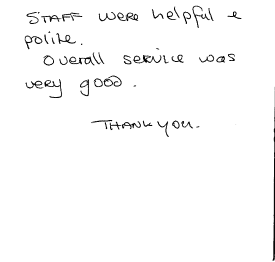 STAFF were helpful &
polite.
Overall service was
very good.
THANK YOU.